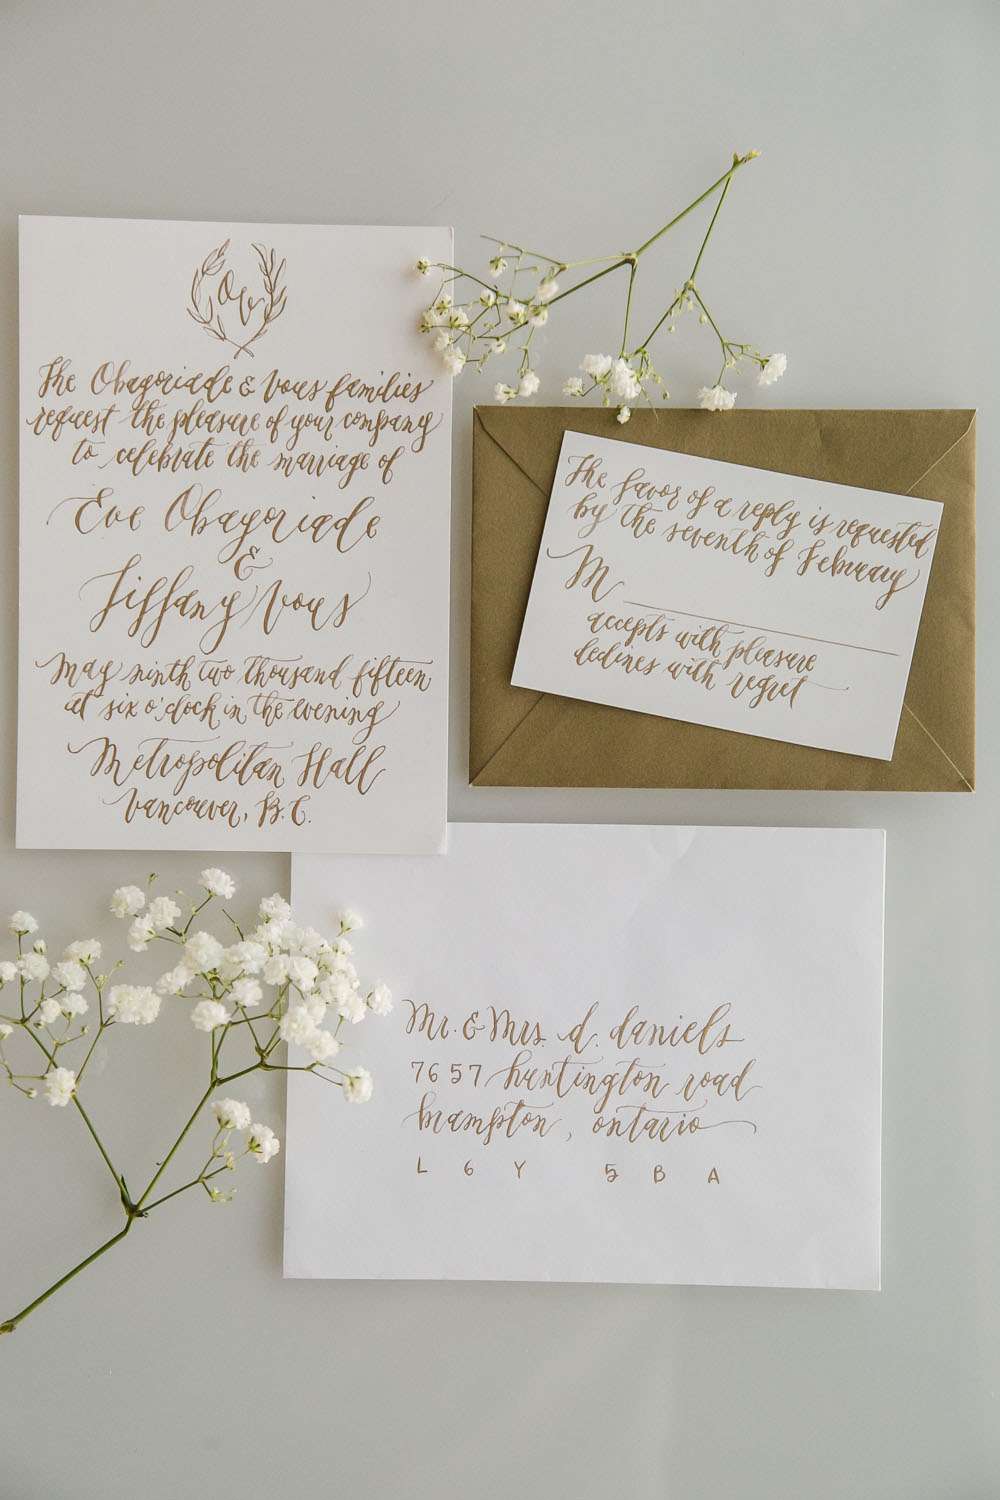 OV
The Obagoriade & Vous families
request the pleasure of your company
to celebrate the marriage of
Eve Obagoriade
&
Tiffany Vous
May ninth two thousand fifteen
at six o'clock in the evening
Metropolitan Hall
Vancouver, B.C.
The favor of a reply is requested
by the seventh of February
M
accepts with pleasure
declines with regret
Mr. & Mrs. d. daniels
7657 huntington road
brampton, ontario
L 6 Y 5 B A